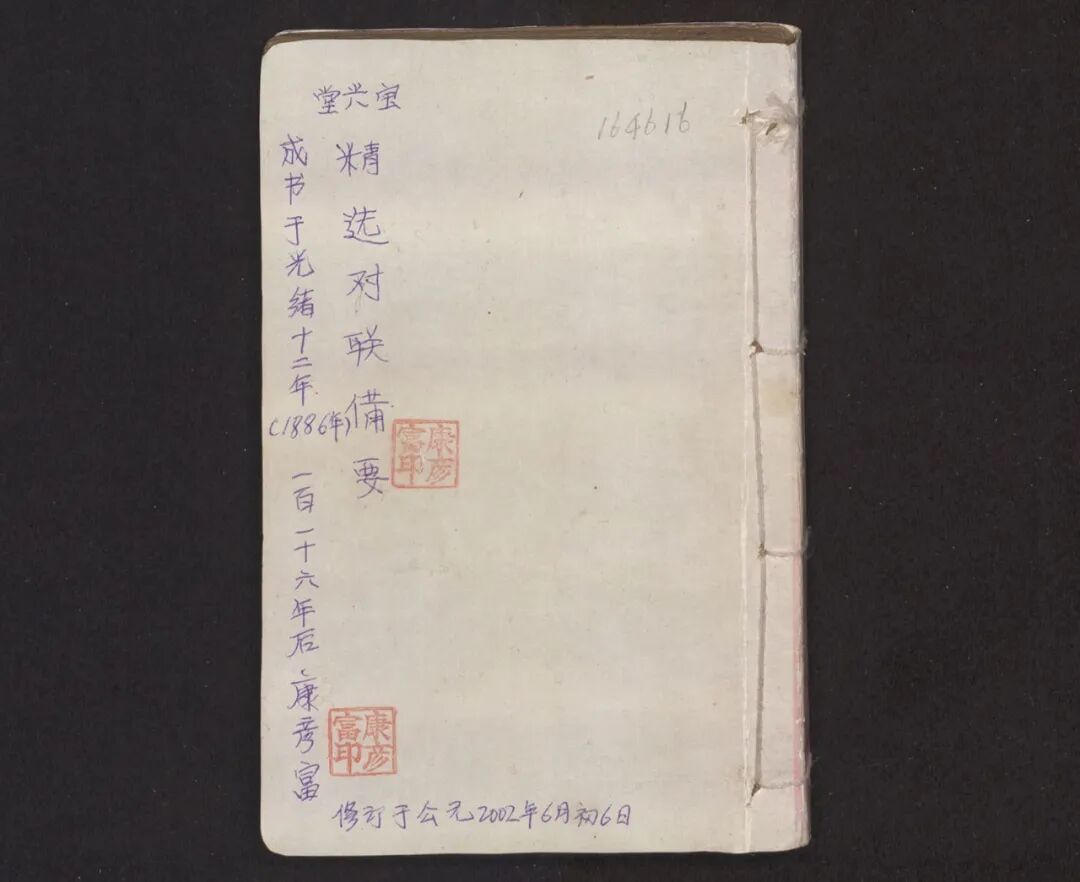 164616
宝兴堂
精选对联備要
康彦富印
成书于光绪十二年
(1886年)
一百一十六年后康彦富
康彦富印
修订于公元2002年6月初6日